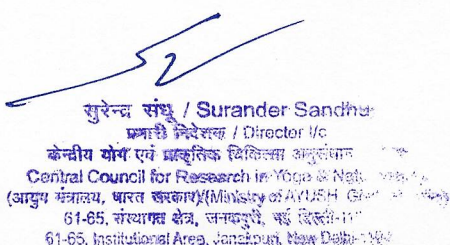 सुरेन्द्र संधू / Surander Sandhu
प्रभारी निदेशक / Director I/c
केन्द्रीय योग एवं प्राकृतिक चिकित्सा अनुसंधान
Central Council for Research in Yoga &
(आयुष मंत्रालय, भारत सरकार)/(Ministry of AYUSH
61-65, संस्थागत क्षेत्र, जनकपुरी, नई दिल्ली-11
61-65, Institutional Area, Janakpuri, New Delhi-